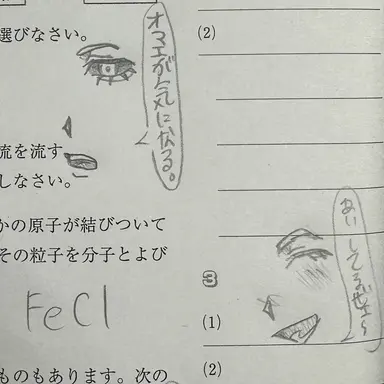 選びなさい。
(2)
オマエが気になる。
流を流す
しなさい。
かの原子が結びついて
その粒子を分子とよび
FeCl
あいしてるぜェ〜
3
(1)
ものもあります。次の
(2)